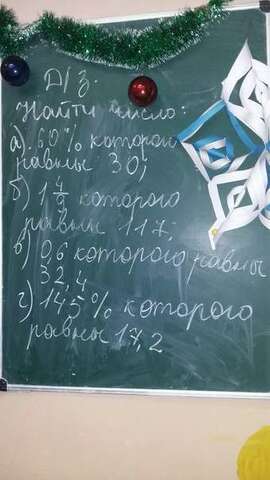 Д/з.
Найти число:
а) 60% которого
равны 30;
б) 1 4/9 которого
равны 117;
в) 0,6 которого равны
32,4
г) 145% которого
равны 17,2